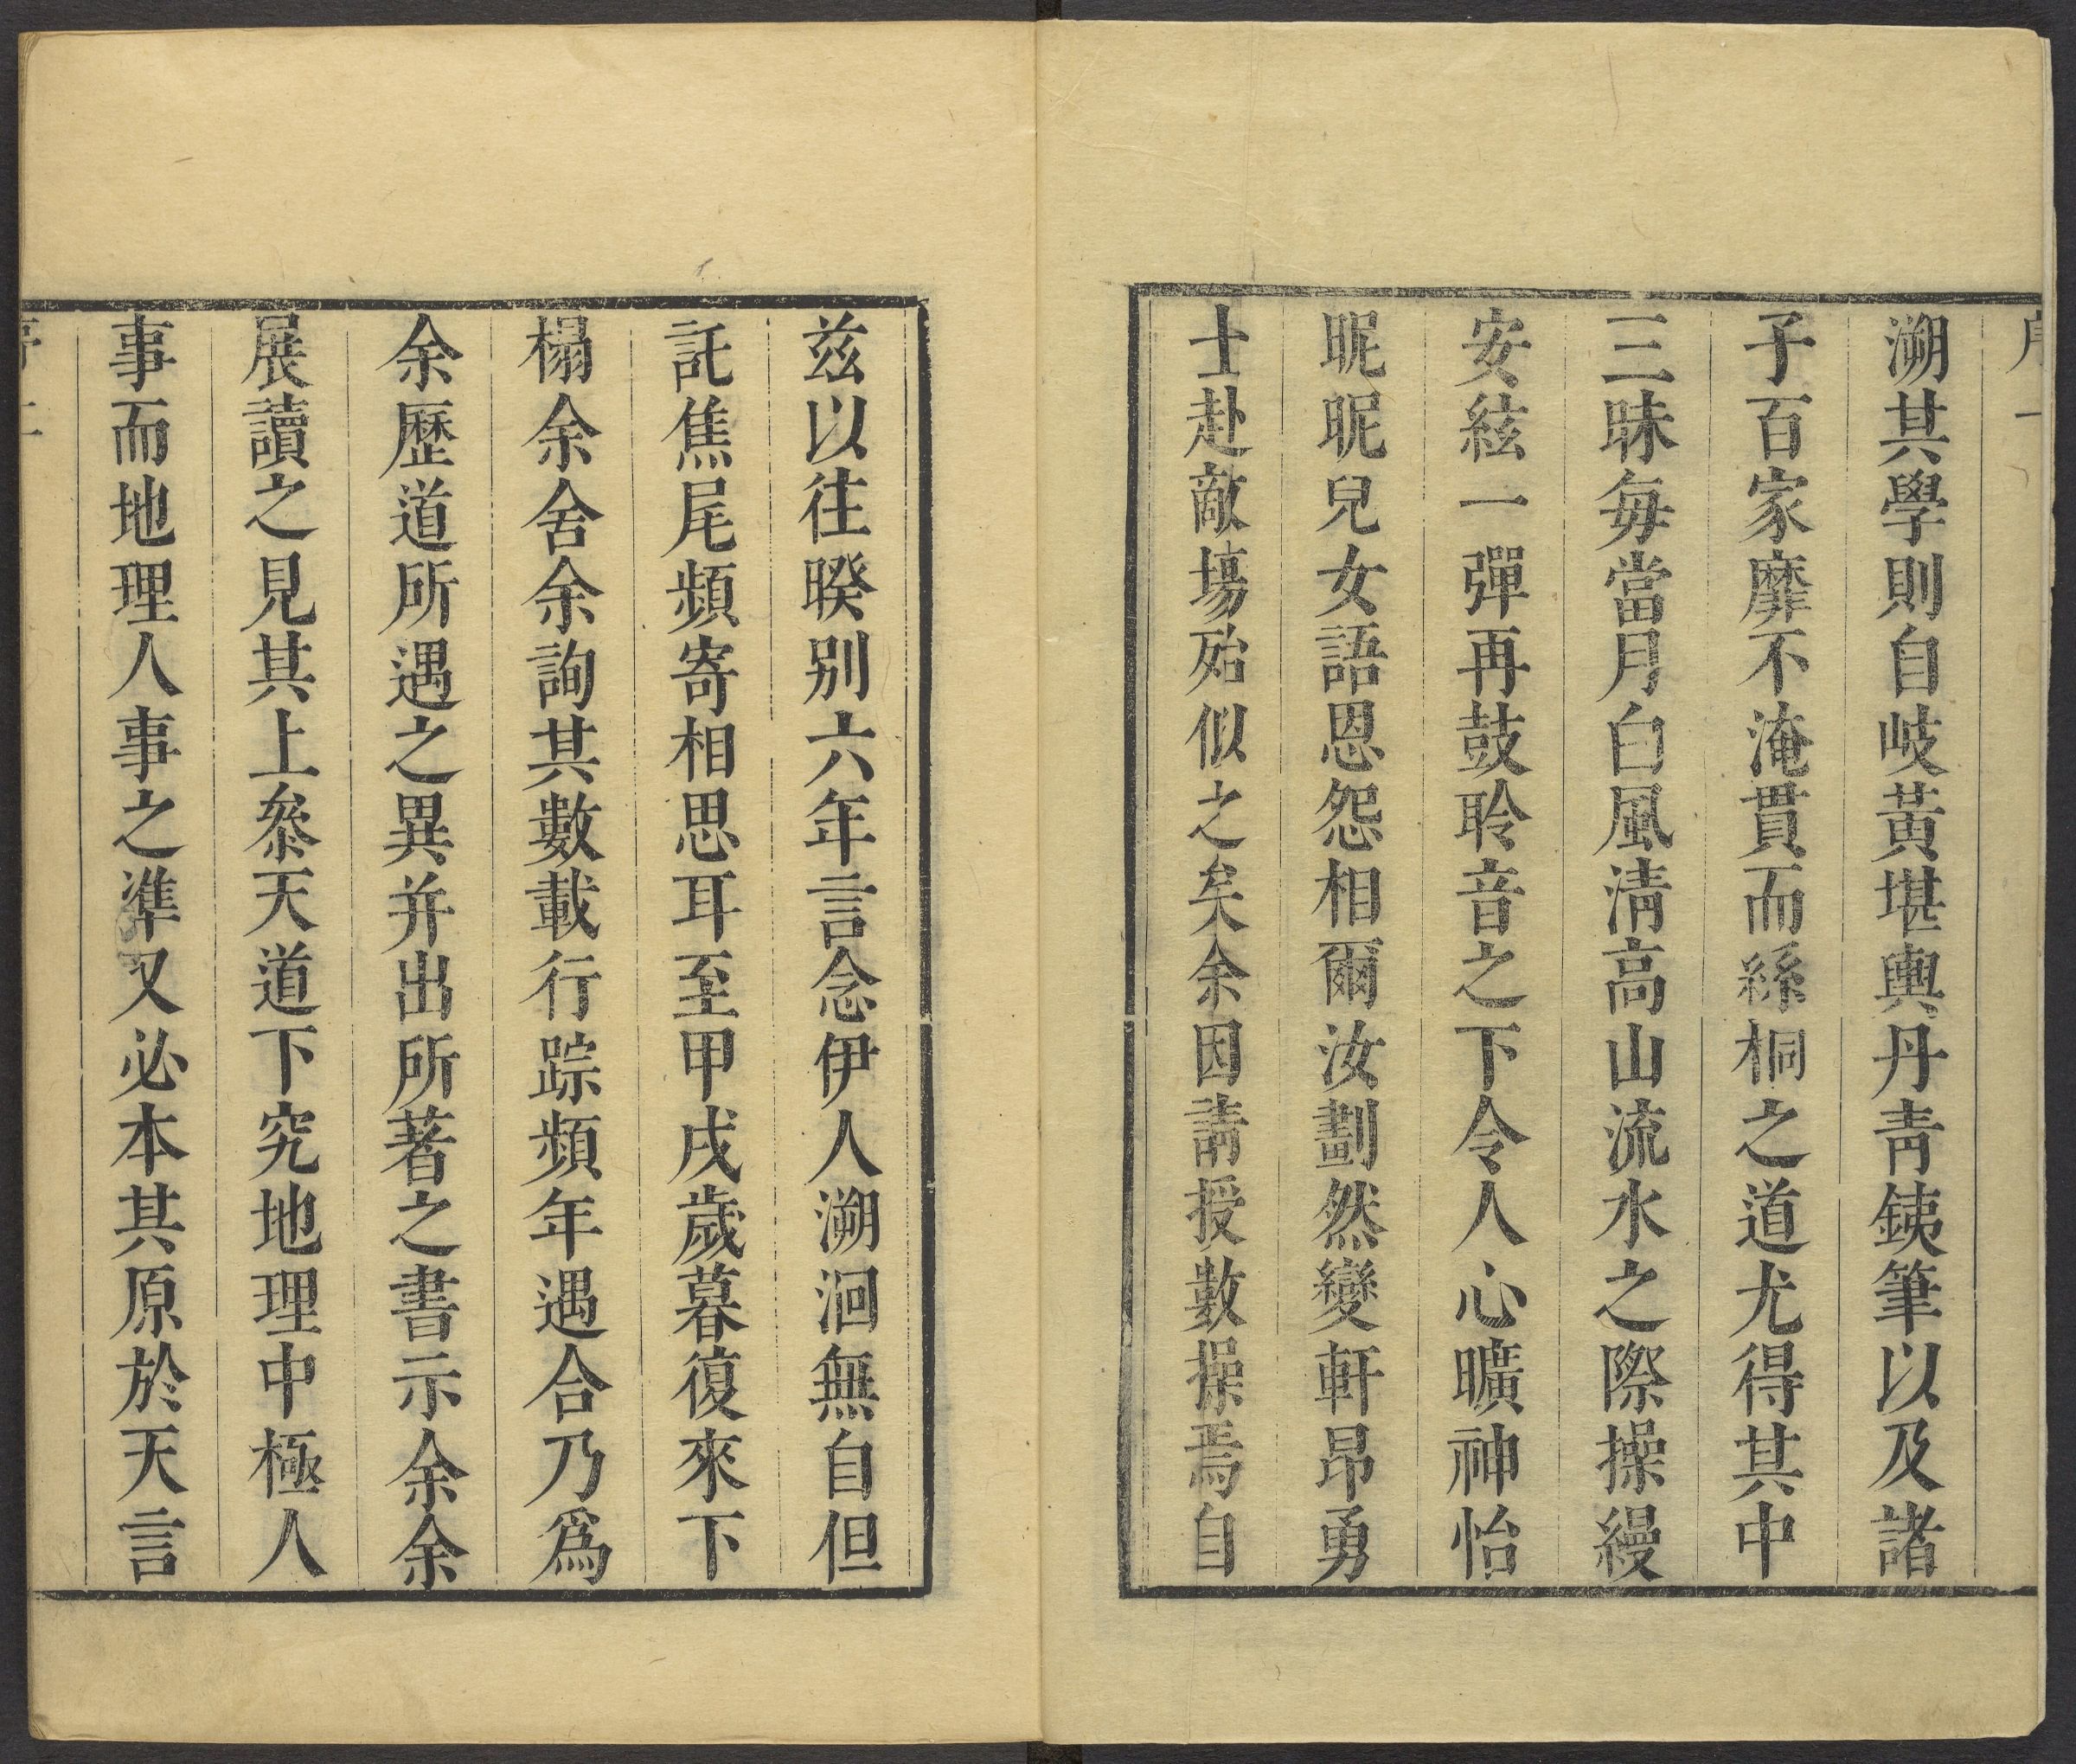 溯其學則自岐黃堪輿丹青銕筆以及諸
子百家靡不淹貫而絲桐之道尤得其中
三昧每當月白風清高山流水之際操縵
安絃一彈再鼓聆音之下令人心曠神怡
昵昵兒女語恩怨相爾汝劃然變軒昂勇
士赴敵場殆似之矣余因請授數操焉自
茲以往暌别六年言念伊人溯洄無自但
託焦尾頻寄相思耳至甲戌歲暮復來下
榻余舍余詢其數載行踪頻年遇合乃爲
余歷道所遇之異并出所著之書示余余
展讀之見其上叅天道下究地理中極人
事而地理人事之準又必本其原於天言